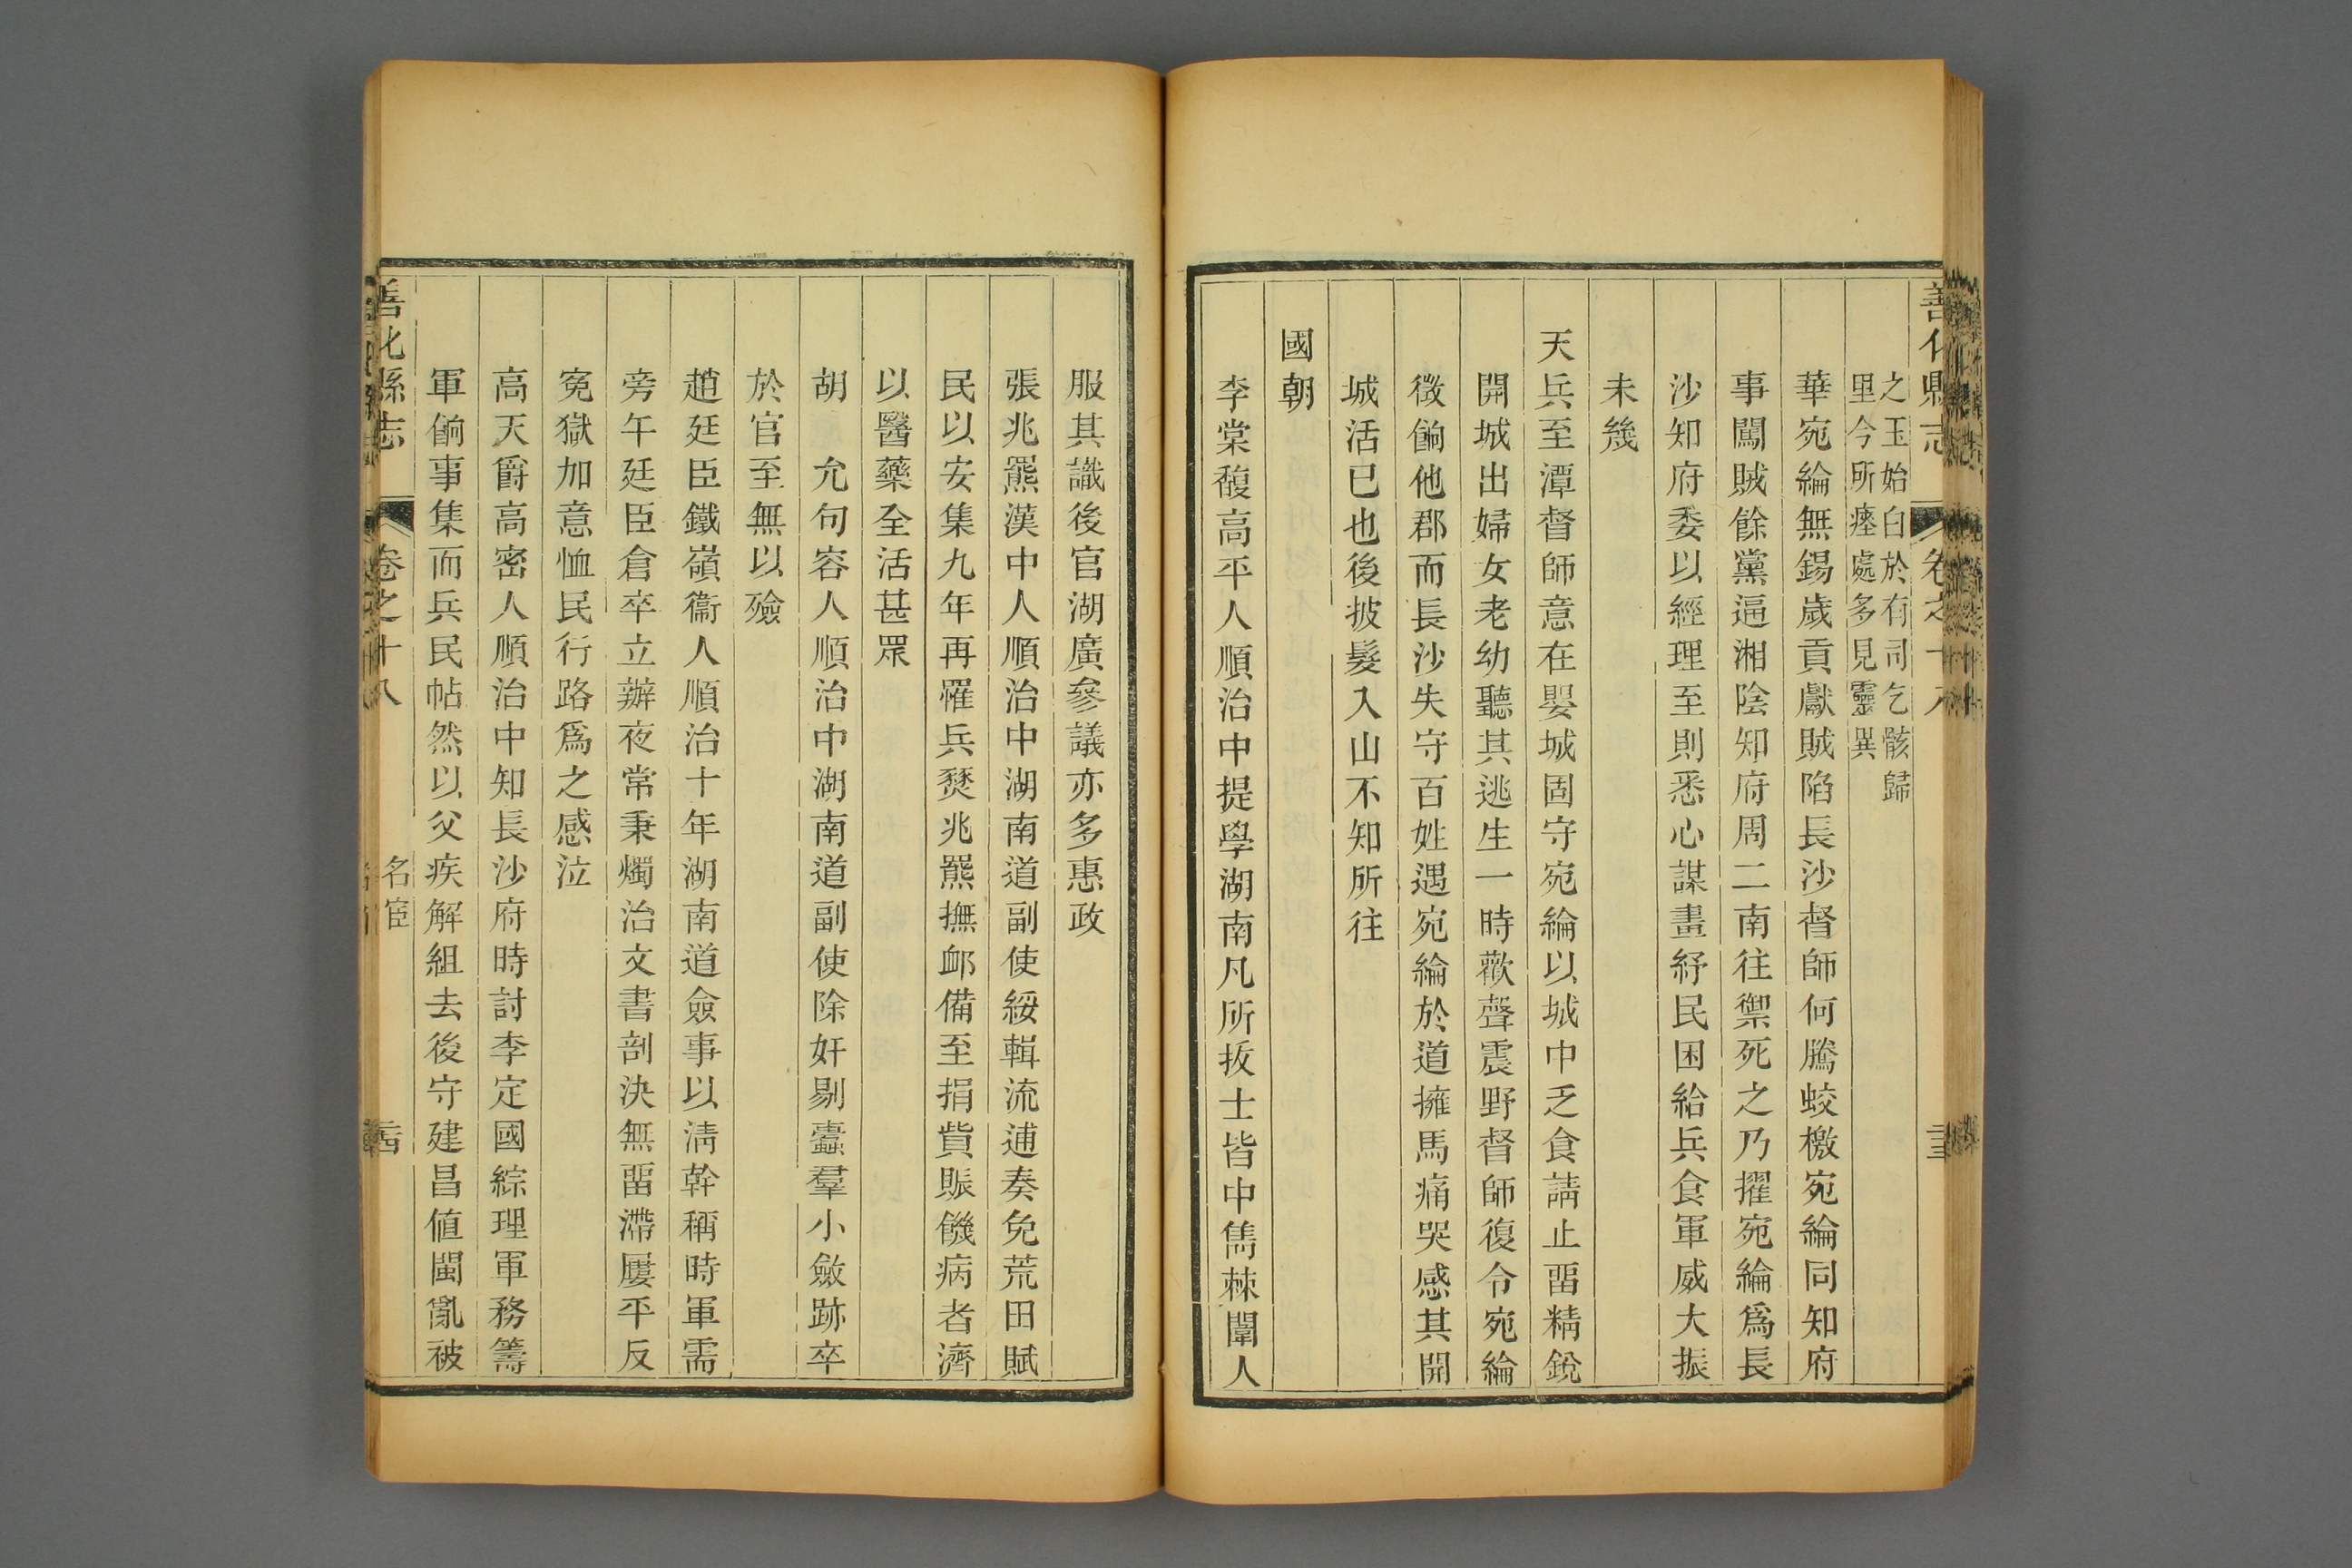 善化縣志
卷之十八
之玉始白於有司乞骸歸
里今所瘞處多見靈異
華宛綸無錫歲貢獻賊陷長沙督師何騰蛟檄宛綸同知府
事闖賊餘黨逼湘陰知府周二南往禦死之乃擢宛綸爲長
沙知府委以經理至則悉心謀畫紓民困給兵食軍威大振
未幾
天兵至潭督師意在嬰城固守宛綸以城中乏食請止畱精銳
開城出婦女老幼聽其逃生一時歡聲震野督師復令宛綸
徵餉他郡而長沙失守百姓遇宛綸於道擁馬痛哭感其開
城活已也後披髮入山不知所往
國朝
李棠馥高平人順治中提學湖南凡所拔士皆中雋棘闈人
服其識後官湖廣參議亦多惠政
張兆羆漢中人順治中湖南道副使綏輯流逋奏免荒田賦
民以安集九年再罹兵燹兆羆撫邮備至捐貲賑饑病者濟
以醫藥全活甚眾
胡　允句容人順治中湖南道副使除奸剔蠹羣小斂跡卒
於官至無以殮
趙廷臣鐵嶺衞人順治十年湖南道僉事以淸幹稱時軍需
旁午廷臣倉卒立辦夜常秉燭治文書剖決無畱滯屢平反
寃獄加意恤民行路爲之感泣
高天爵高密人順治中知長沙府時討李定國綜理軍務籌
軍餉事集而兵民帖然以父疾解組去後守建昌値閩亂被
善化縣志
卷之十八
名宦